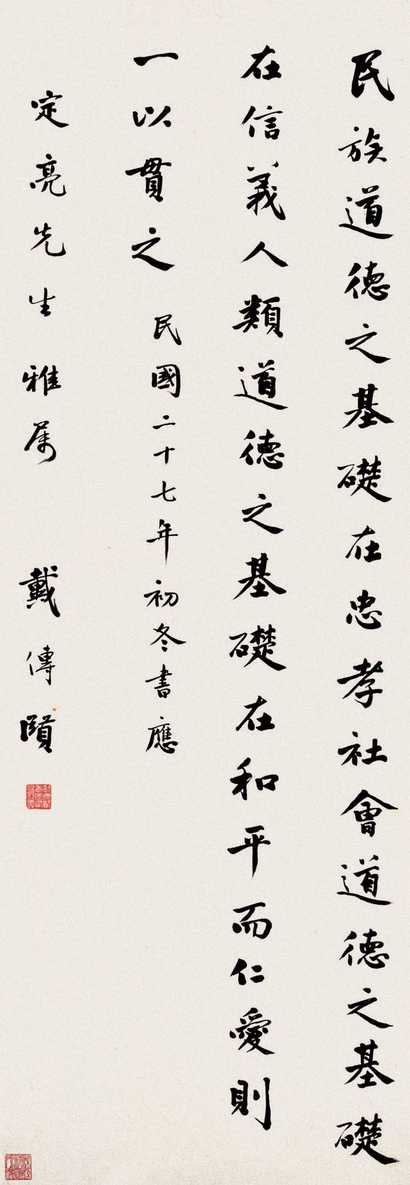 民族道德之基礎在忠孝社會道德之基礎
在信義人類道德之基礎在和平而仁愛則
一以貫之
民國二十七年初冬書應
定亮先生雅属
戴傳賢